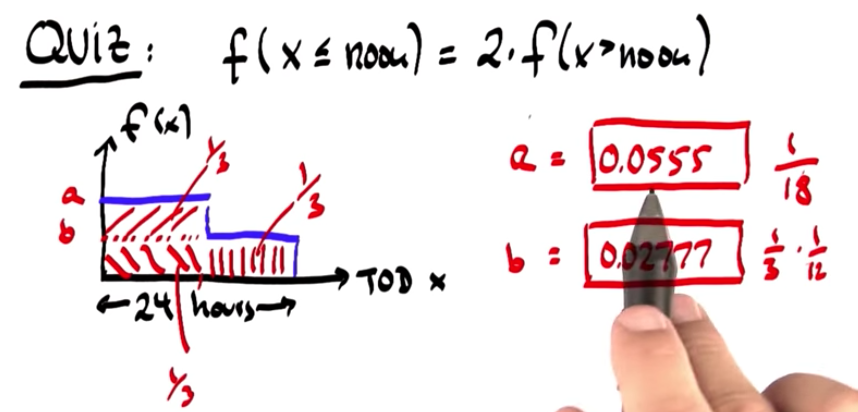 QUIZ: f(x ≤ noon) = 2·f(x > noon)
f(x)
1/3
1/3
a
b
TOD x
24 hours
1/3
a = 0.0555 1/18
b = 0.02777 1/3 · 1/12